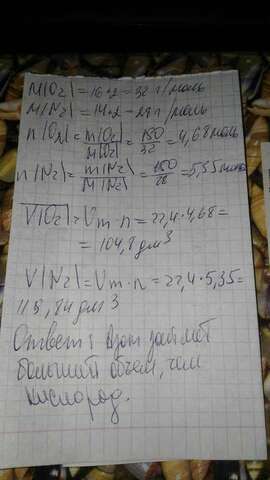 M(O₂) = 16·2 = 32 г/моль
M(N₂) = 14·2 = 28 г/моль
n(O₂) = m(O₂)/M(O₂) = 150/32 = 4,68 моль
n(N₂) = m(N₂)/M(N₂) = 150/28 = 5,35 моль
V(O₂) = Vm·n = 22,4·4,68 =
= 104,8 дм³
V(N₂) = Vm·n = 22,4·5,35 =
119,84 дм³
Ответ: Азот займёт
больший объем, чем
кислород.